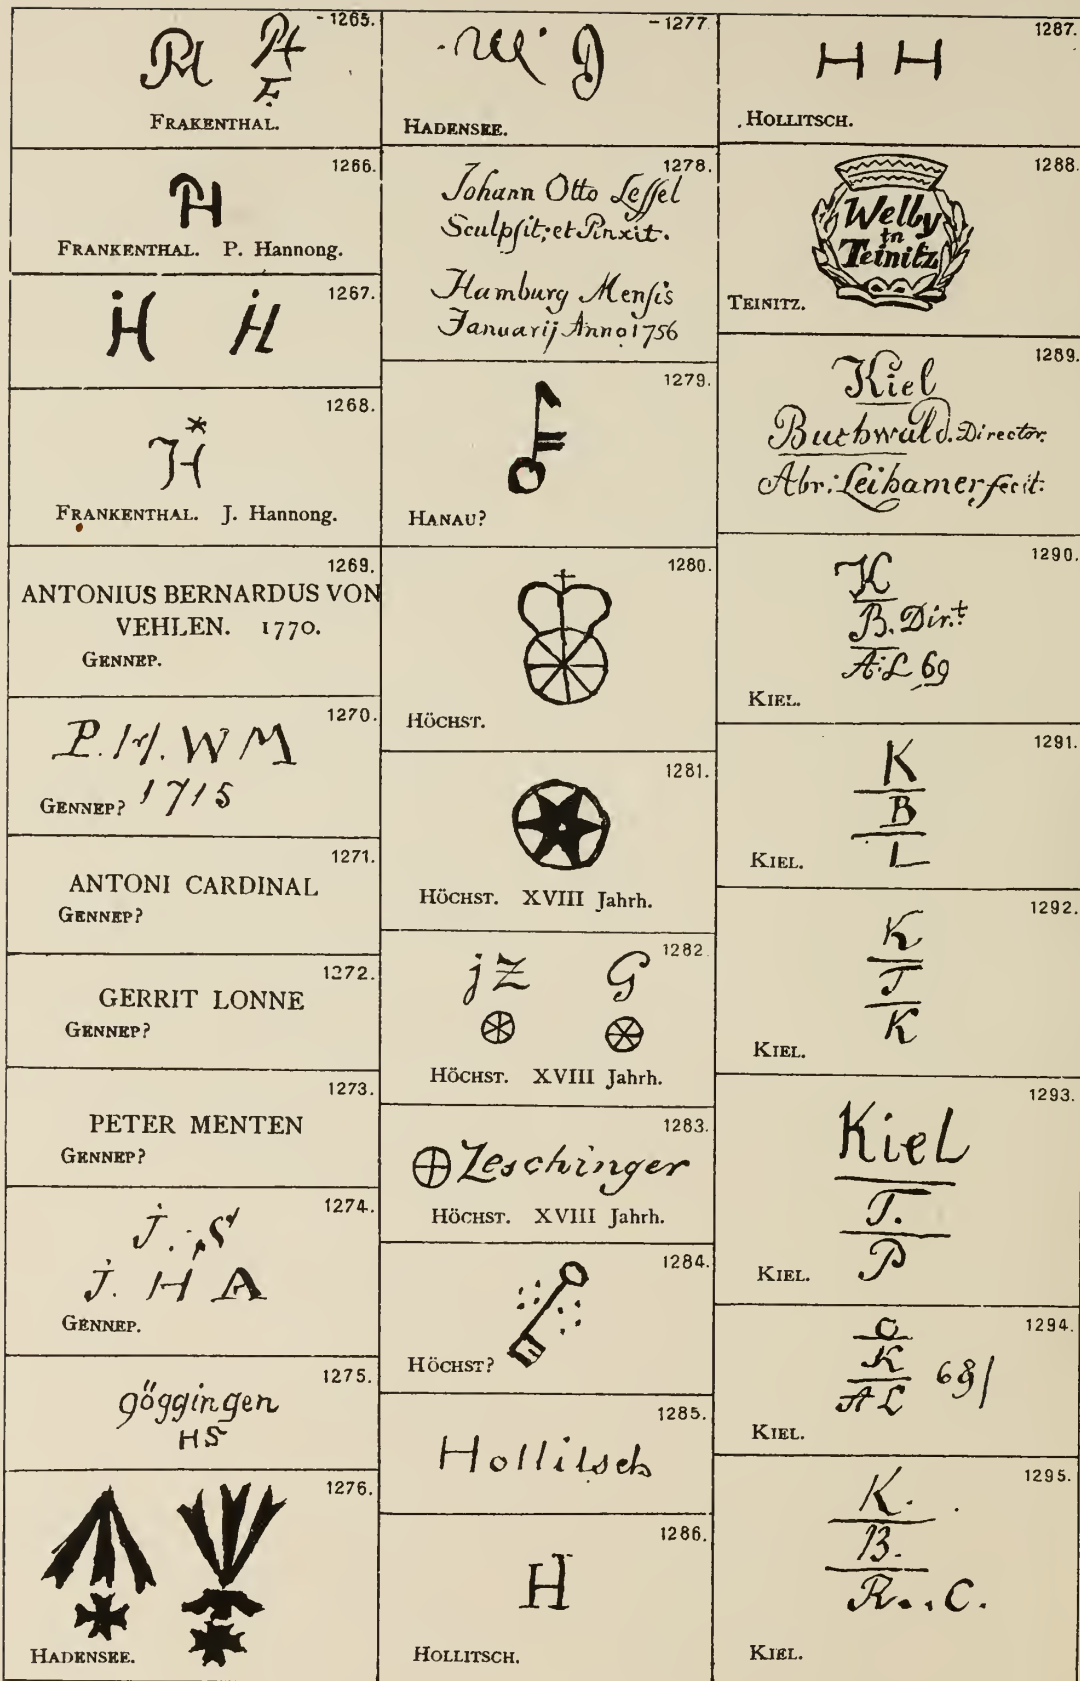 -1265.
PH PH
F.
FRAKENTHAL.
1266.
PH
FRANKENTHAL. P. Hannong.
1267.
1268.
FRANKENTHAL. J. Hannong.
1269.
ANTONIUS BERNARDUS VON
VEHLEN. 1770.
GENNEP.
1270.
P. H. W M
GENNEP? 1715
1271.
ANTONI CARDINAL
GENNEP?
1272.
GERRIT LONNE
GENNEP?
1273.
PETER MENTEN
GENNEP?
1274.
j. S
j. H A
GENNEP.
1275.
göggingen
HS
1276.
HADENSEE.
-1277.
D
HADENSEE.
1278.
Johann Otto Leſſel
Sculpſit, et Pinxit.
Hamburg Menſis
Januarij Anno 1756
1279.
HANAU?
1280.
HÖCHST.
1281.
HÖCHST. XVIII Jahrh.
1282.
jZ G
HÖCHST. XVIII Jahrh.
1283.
Zeschinger
HÖCHST. XVIII Jahrh.
1284.
HÖCHST?
1285.
Hollitsch
1286.
H
HOLLITSCH.
1287.
H H
HOLLITSCH.
1288.
Welby
in
Teinitz
TEINITZ.
1289.
Kiel
Buchwald. Director.
Abr: Leihamer fecit:
1290.
K
B. Dir.t
A:L 69
KIEL.
1291.
K
B
L
KIEL.
1292.
K
T
K
KIEL.
1293.
Kiel
T.
P
KIEL.
1294.
O
K
AL 69/
KIEL.
1295.
K.
B.
R.. C.
KIEL.